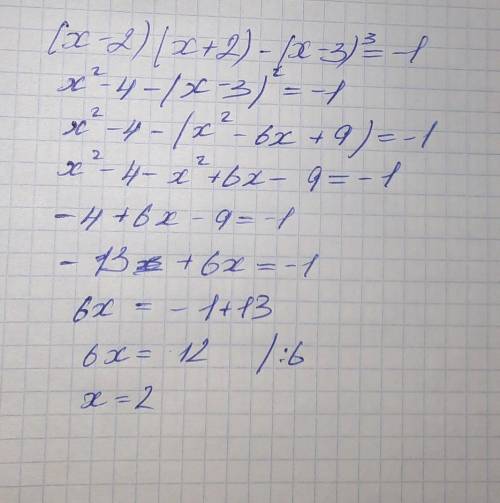 (x-2)(x+2)-(x-3)³=-1
x²-4-(x-3)²=-1
x²-4-(x²-6x+9)=-1
x²-4-x²+6x-9=-1
-4+6x-9=-1
-13+6x=-1
6x=-1+13
6x=12 /:6
x=2